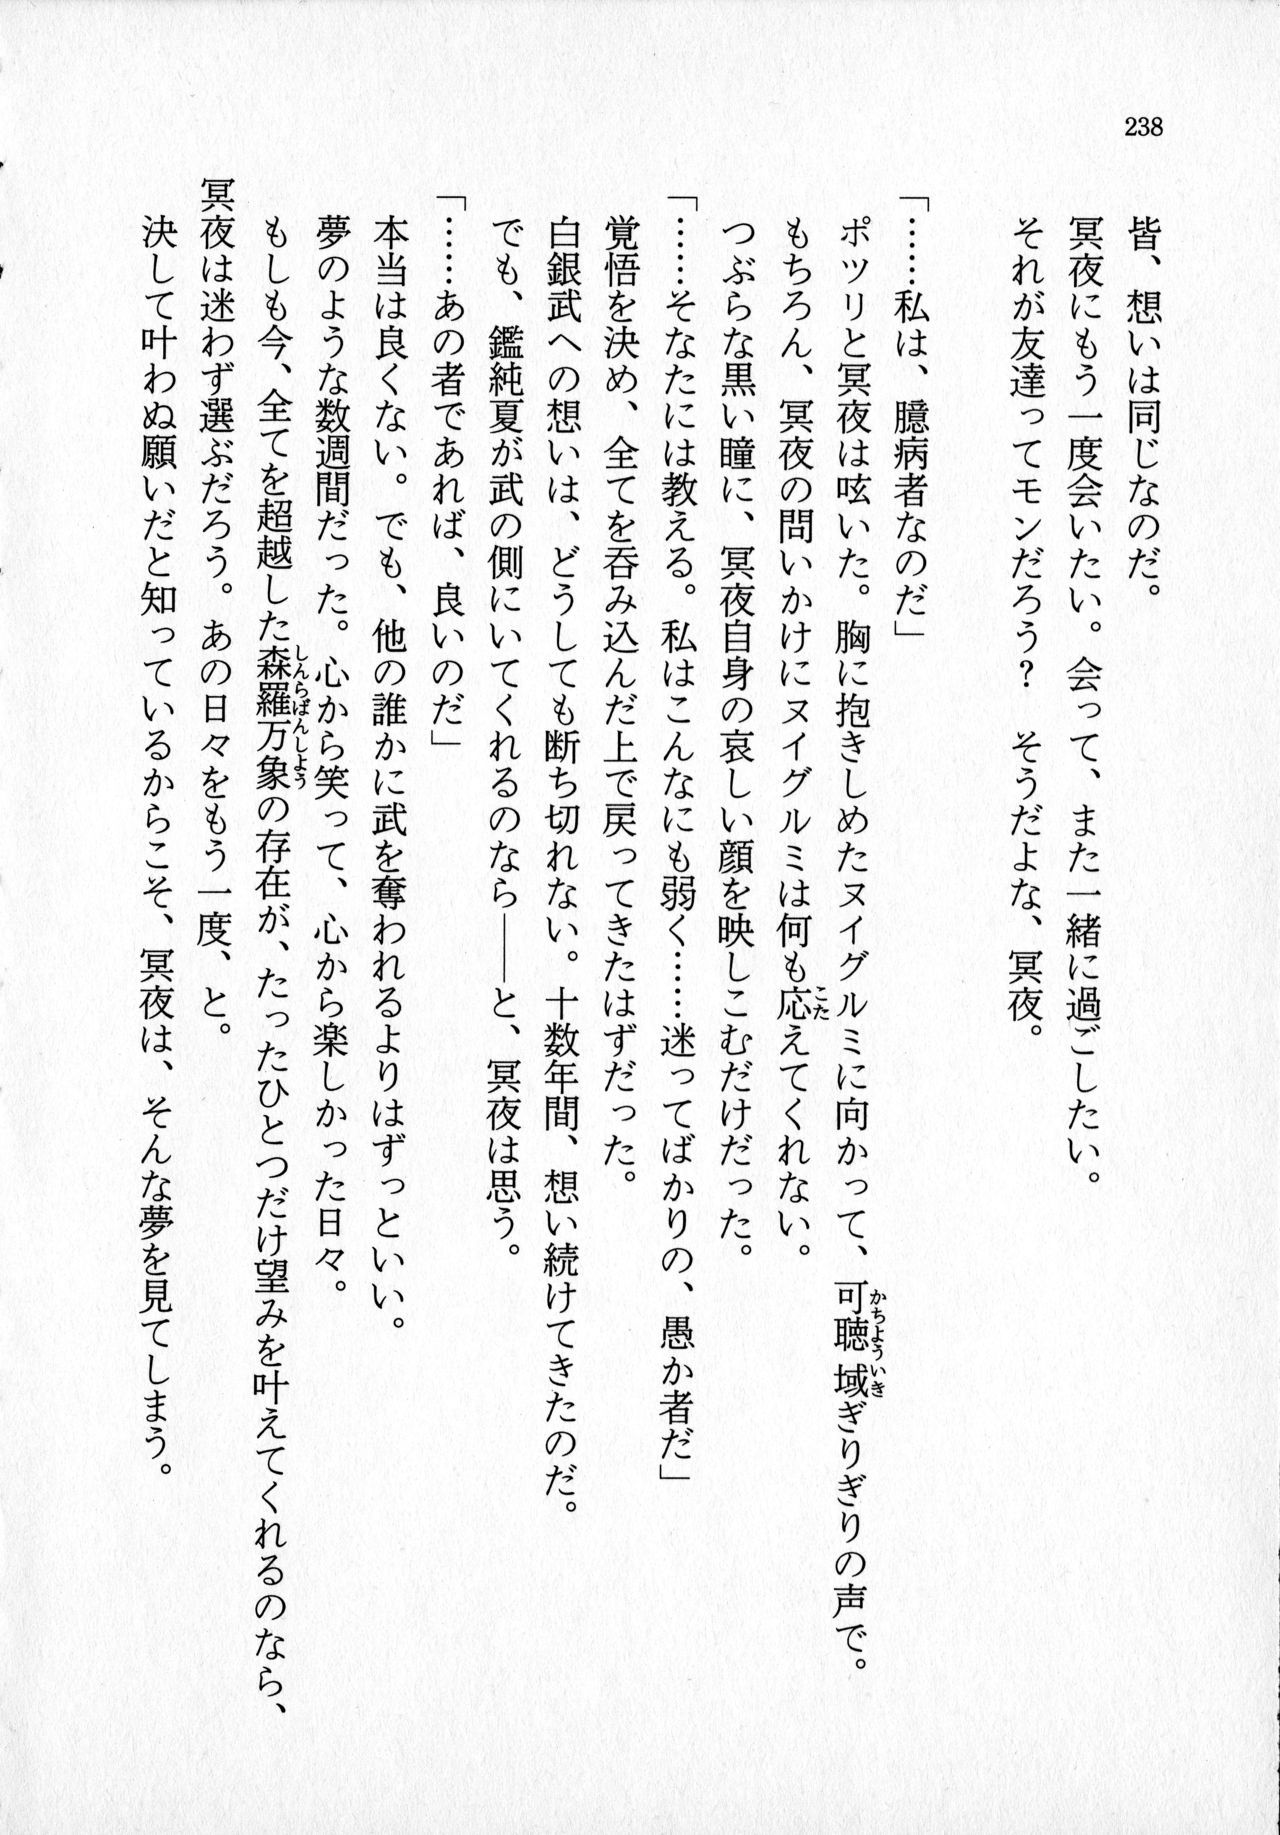 238
皆、想いは同じなのだ。
冥夜にもう一度会いたい。会って、また一緒に過ごしたい。
それが友達ってモンだろう？　そうだよな、冥夜。
「……私は、臆病者なのだ」
ポツリと冥夜は呟いた。胸に抱きしめたヌイグルミに向かって、可聴域ぎりぎりの声で。
もちろん、冥夜の問いかけにヌイグルミは何も応えてくれない。
つぶらな黒い瞳に、冥夜自身の哀しい顔を映しこむだけだった。
「……そなたには教える。私はこんなにも弱く……迷ってばかりの、愚か者だ」
覚悟を決め、全てを呑み込んだ上で戻ってきたはずだった。
白銀武への想いは、どうしても断ち切れない。十数年間、想い続けてきたのだ。
でも、鑑純夏が武の側にいてくれるのなら――と、冥夜は思う。
「……あの者であれば、良いのだ」
本当は良くない。でも、他の誰かに武を奪われるよりはずっといい。
夢のような数週間だった。心から笑って、心から楽しかった日々。
もしも今、全てを超越した森羅万象の存在が、たったひとつだけ望みを叶えてくれるのなら、
冥夜は迷わず選ぶだろう。あの日々をもう一度、と。
決して叶わぬ願いだと知っているからこそ、冥夜は、そんな夢を見てしまう。